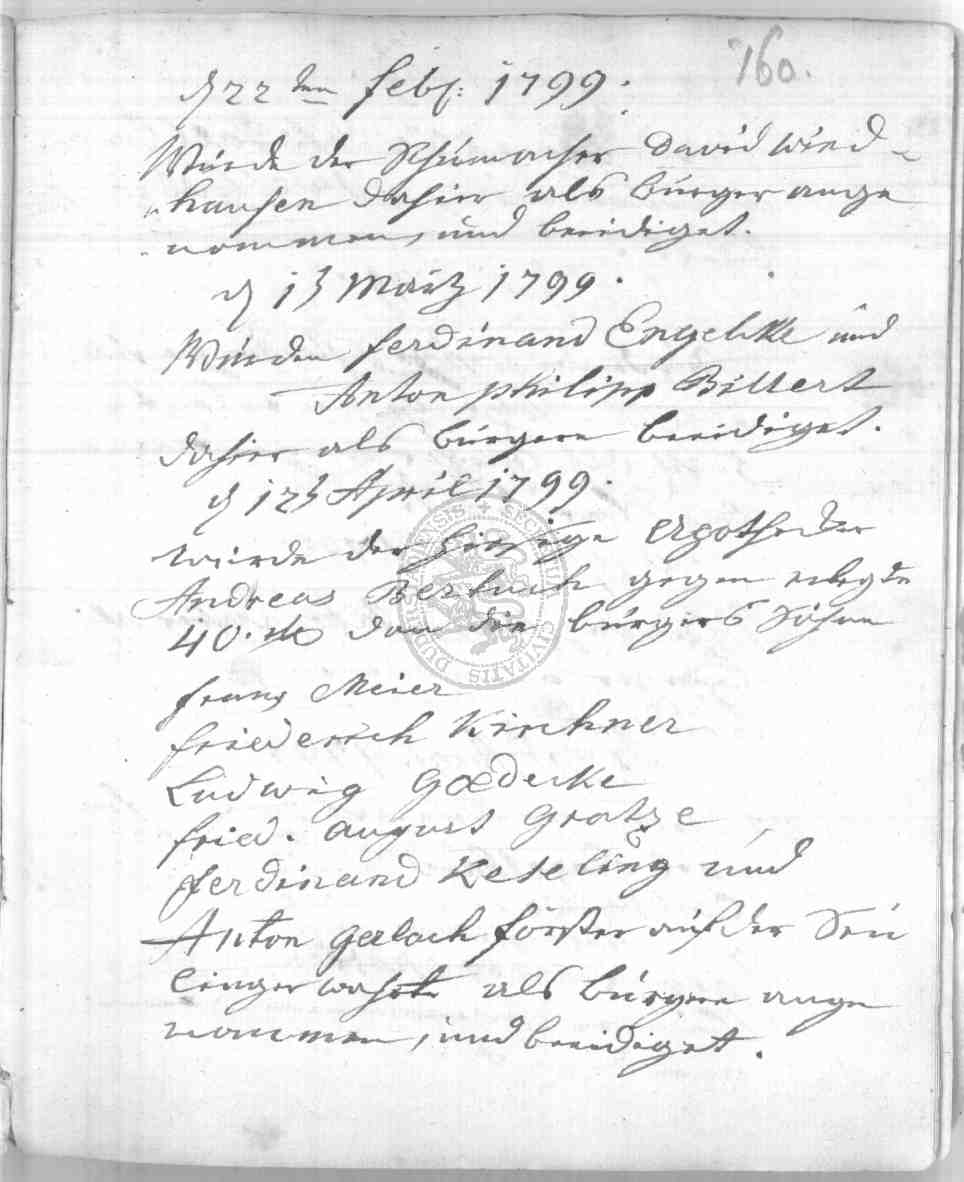 160.
d 22ten Febr: 1799.
Wurde der Schumacher David Wied-
hausen dahier als bürger ange
nommen, und beeidiget.
d 13 März 1799.
Wurden Ferdinand Engelke und
Anton Philipp Billert
dahier als bürgere beeidiget.
d 123 April 1799.
wurde der hiesige Apotheker
Andreas Berbuch gegen erlegte
40. rtl dan die bürgers Söhne
Franz Meier
Friederich Kirchner
Ludwig Goedecke
Fried. August Grotze
Ferdinand Keseling und
Anton Gerlach Förster auf der Seu
linger wahrte als bürgere ange
nommen, und beeidiget.